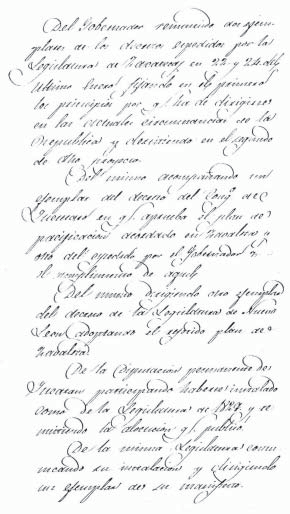 Del Gobernador remitiendo dos ejem-
plares de los decretos expedidos por la
Legislatura de Zacatecas en 22 y 24 del
ultimo Enero fijando en el primero
los principios por q.e ha de dirigirse
en las actuales circunstancias de la
Republica y decidiendo en el segundo
de otro proyecto
Del mismo acompañando un
ejemplar del decreto del Cong.o de
en q.e aprueba el plan de
pacificacion acordado en Zavaleta y
otro del espedido por el Gobernador
el cumplimiento de aquel,
Del mismo dirigiendo otro ejemplar
del decreto de la Legislatura de Nuevo
Leon adoptando el referido plan de
Zavaleta
De la Diputacion permanente de
Yucatan participando haberse instalado
como de la Legislatura de 1827. y re
mitiendo la alocucion q.e publicó
De la misma Legislatura comu
nicando su instalacion y dirigiendo
un ejemplar de su manifiesto.